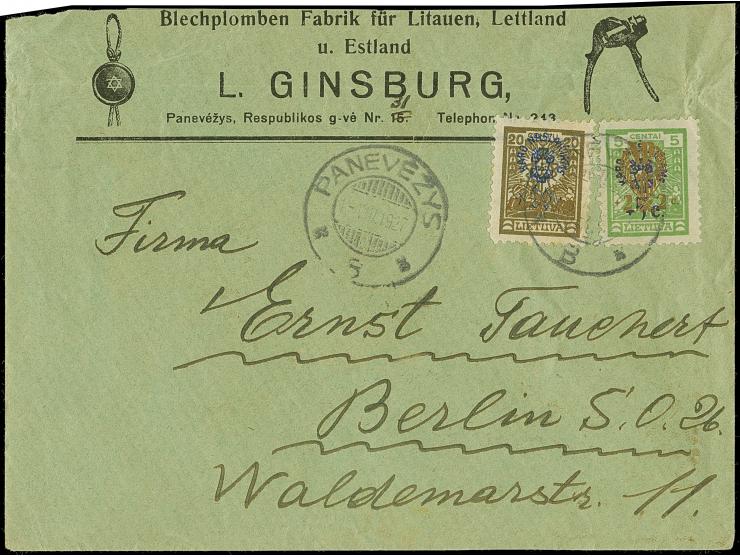 Blechplomben Fabrik für Litauen, Lettland
u. Estland
L. GINSBURG,
31
Panevėžys, Respublikos g-vė Nr. 15. Telephon Nr. 213
20 20
LIETUVA
5 CENTAI 5
LIETUVA
PANEVĖŽYS
1927
Firma
Ernst Tauchert
Berlin S.O. 26.
Waldemarstr. 11.